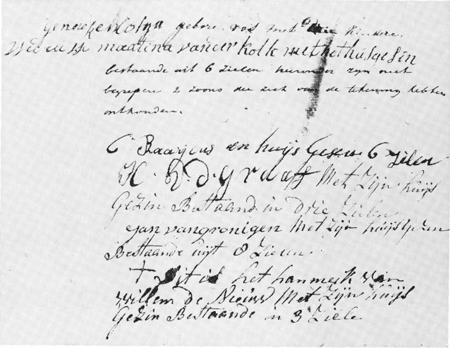 geb. Vos met drie kindere.
Weduwe martina vander kolk met het huisgesin
bestaande uit 6 zielen hieronder zijn niet
begrepen 2 zoons die zich van de tekening hebben
onthouden.
C Baazens en huijs Gesin 6 zielen
H. R. d. graaff Met Zijn huijs
Gezin Bestaand in drie Zielen
Jan van gronigen Met Zijn huijsgezin
Bestaande uijt 8 Zielen
+ Dit is het hanmerk van
willem de Nieuw Met Zijn huijs
Gezin Bestaande in 3 Ziele